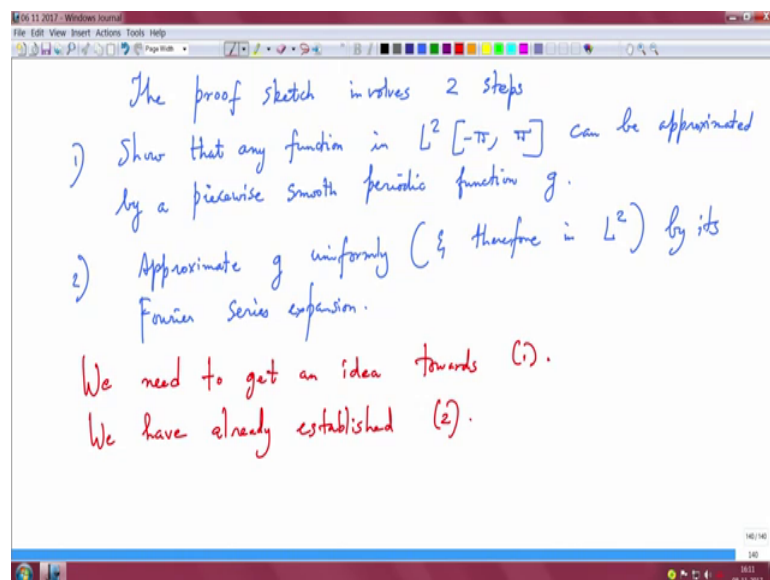 06 11 2017 - Windows Journal
File Edit View Insert Actions Tools Help
Page Width
The proof sketch involves 2 steps
1) Show that any function in L² [-π, π] can be approximated
by a piecewise smooth periodic function g.
2) Approximate g uniformly (& therefore in L²) by its
Fourier Series expansion.
We need to get an idea towards (1).
We have already established (2).
140/140
140
16:11